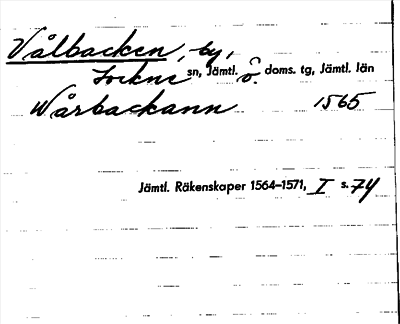 Vålbacken, by,
Lockne sn, Jämtl. ö. doms. tg, Jämtl. län
Wårbackann 1565
Jämtl. Räkenskaper 1564–1571, I s. 74